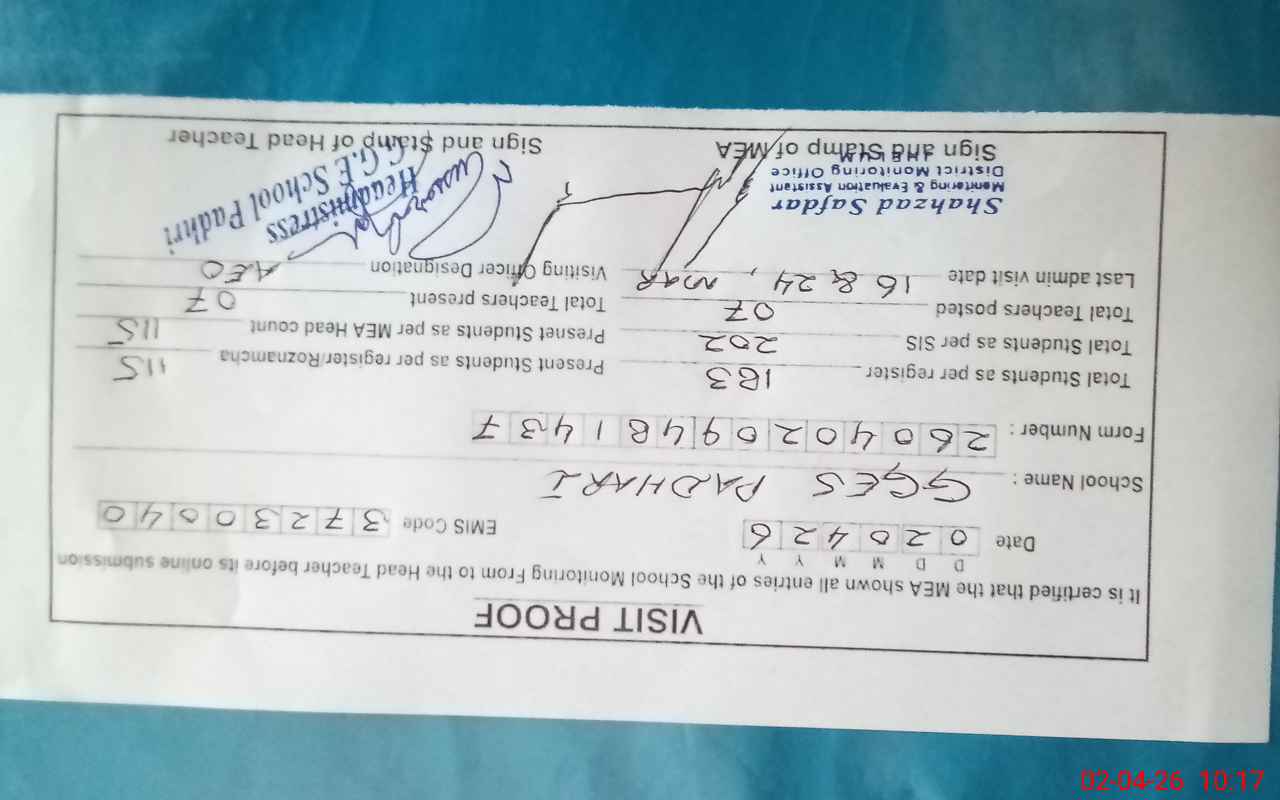 VISIT PROOF
It is certified that the MEA shown all entries of the School Monitoring From to the Head Teacher before its online submission
D D M M Y Y
Date 0 2 0 4 2 6 EMIS Code 3 7 2 3 0 0 4 0
School Name : GGES PADHARI
Form Number : 2 6 0 4 0 2 0 9 4 8 1 4 3 7
Total Students as per register 183 Present Students as per register/Roznamcha 115
Total Students as per SIS 202 Presnet Students as per MEA Head count 115
Total Teachers posted 07 Total Teachers present 07
Last admin visit date 16 & 24, MAR Visiting Officer Designation AEO
Shahzad Safdar
Monitoring & Evaluation Assistant
District Monitoring Office
JHELUM
Headmistress
G.E School Padhri
Sign and Stamp of MEA Sign and Stamp of Head Teacher
02-04-26 10:17